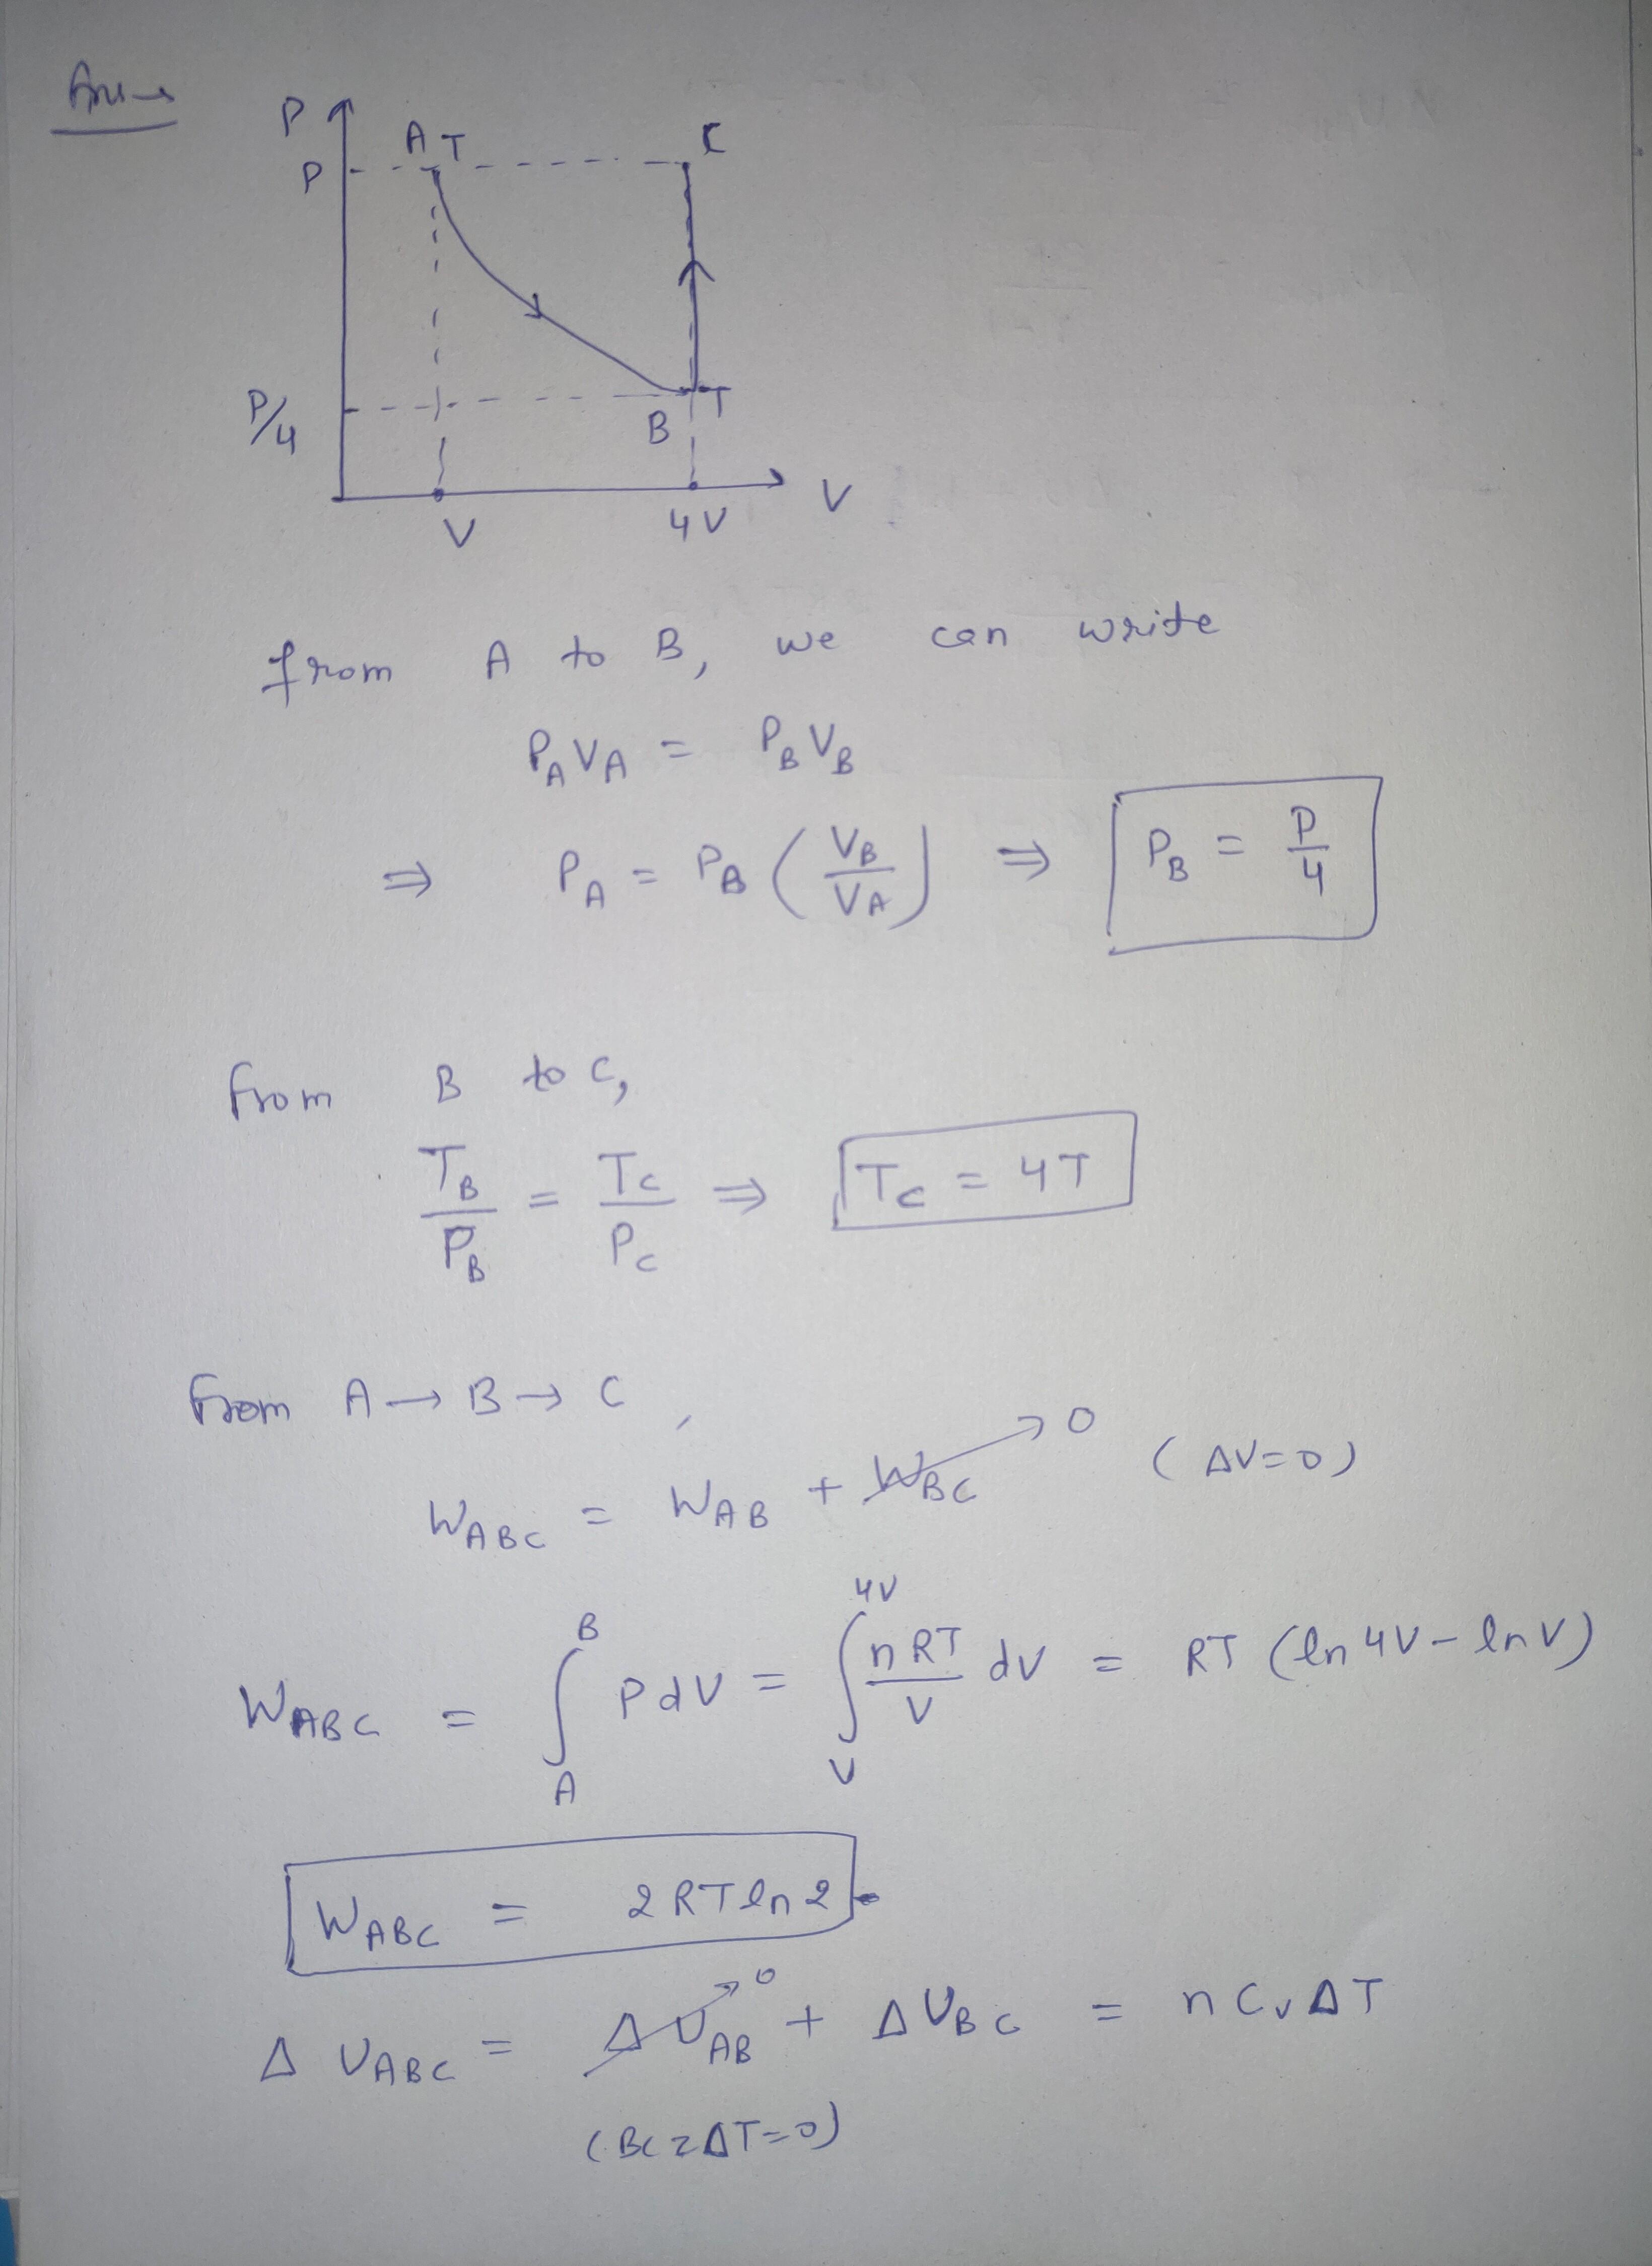 Ans→
P
P
A T
C
P/4
B
T
V
4V
V
from A to B, we can write
P_A V_A = P_B V_B
⇒ P_A = P_B (V_B/V_A) ⇒ P_B = P/4
From B to C,
T_B/P_B = T_C/P_C ⇒ T_C = 4T
From A → B → C,
W_ABC = W_AB + W_BC → 0 (ΔV=0)
W_ABC = ∫_A^B PdV = ∫_V^4V nRT/V dV = RT (ln 4V - ln V)
W_ABC = 2RT ln 2
Δ U_ABC = Δ U_AB → 0 + Δ U_BC = n C_v ΔT
(BCZ ΔT=0)